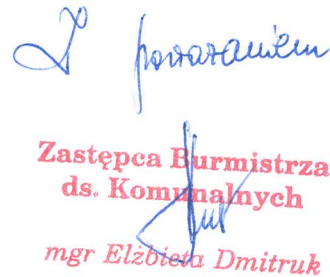 Z poważaniem
Zastępca Burmistrza
ds. Komunalnych
mgr Elżbieta Dmitruk